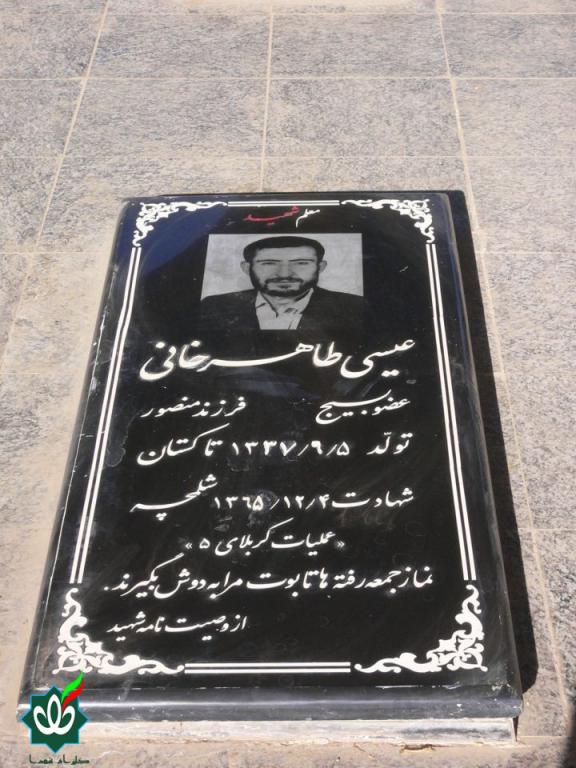 معلم شهید
عیسی طاهرخانی
عضو بسیج فرزند منصور
تولد ۱۳۳۷/۹/۵ تاکستان
شهادت ۱۳۶۵/۱۲/۴ شلمچه
«عملیات کربلای ۵»
نماز جمعه رفته ها تابوت مرا به دوش بگیرند.
از وصیت نامه شهید
گلزار شهدا